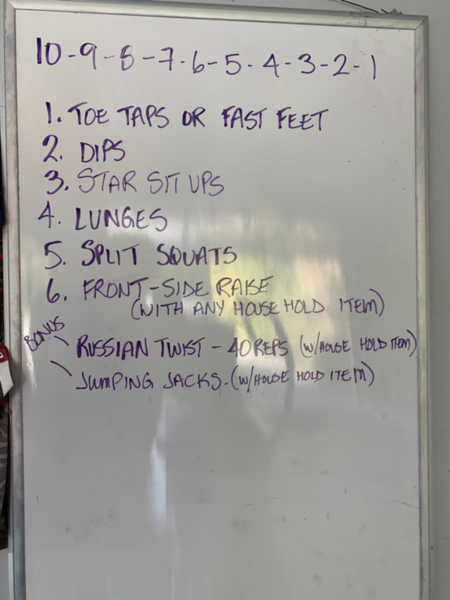 10-9-8-7-6-5-4-3-2-1
1. TOE TAPS OR FAST FEET
2. DIPS
3. STAR SIT UPS
4. LUNGES
5. SPLIT SQUATS
6. FRONT-SIDE RAISE
(WITH ANY HOUSE HOLD ITEM)
BONUS
RUSSIAN TWIST - 40 REPS (W/HOUSE HOLD ITEM)
JUMPING JACKS. (W/HOUSE HOLD ITEM)